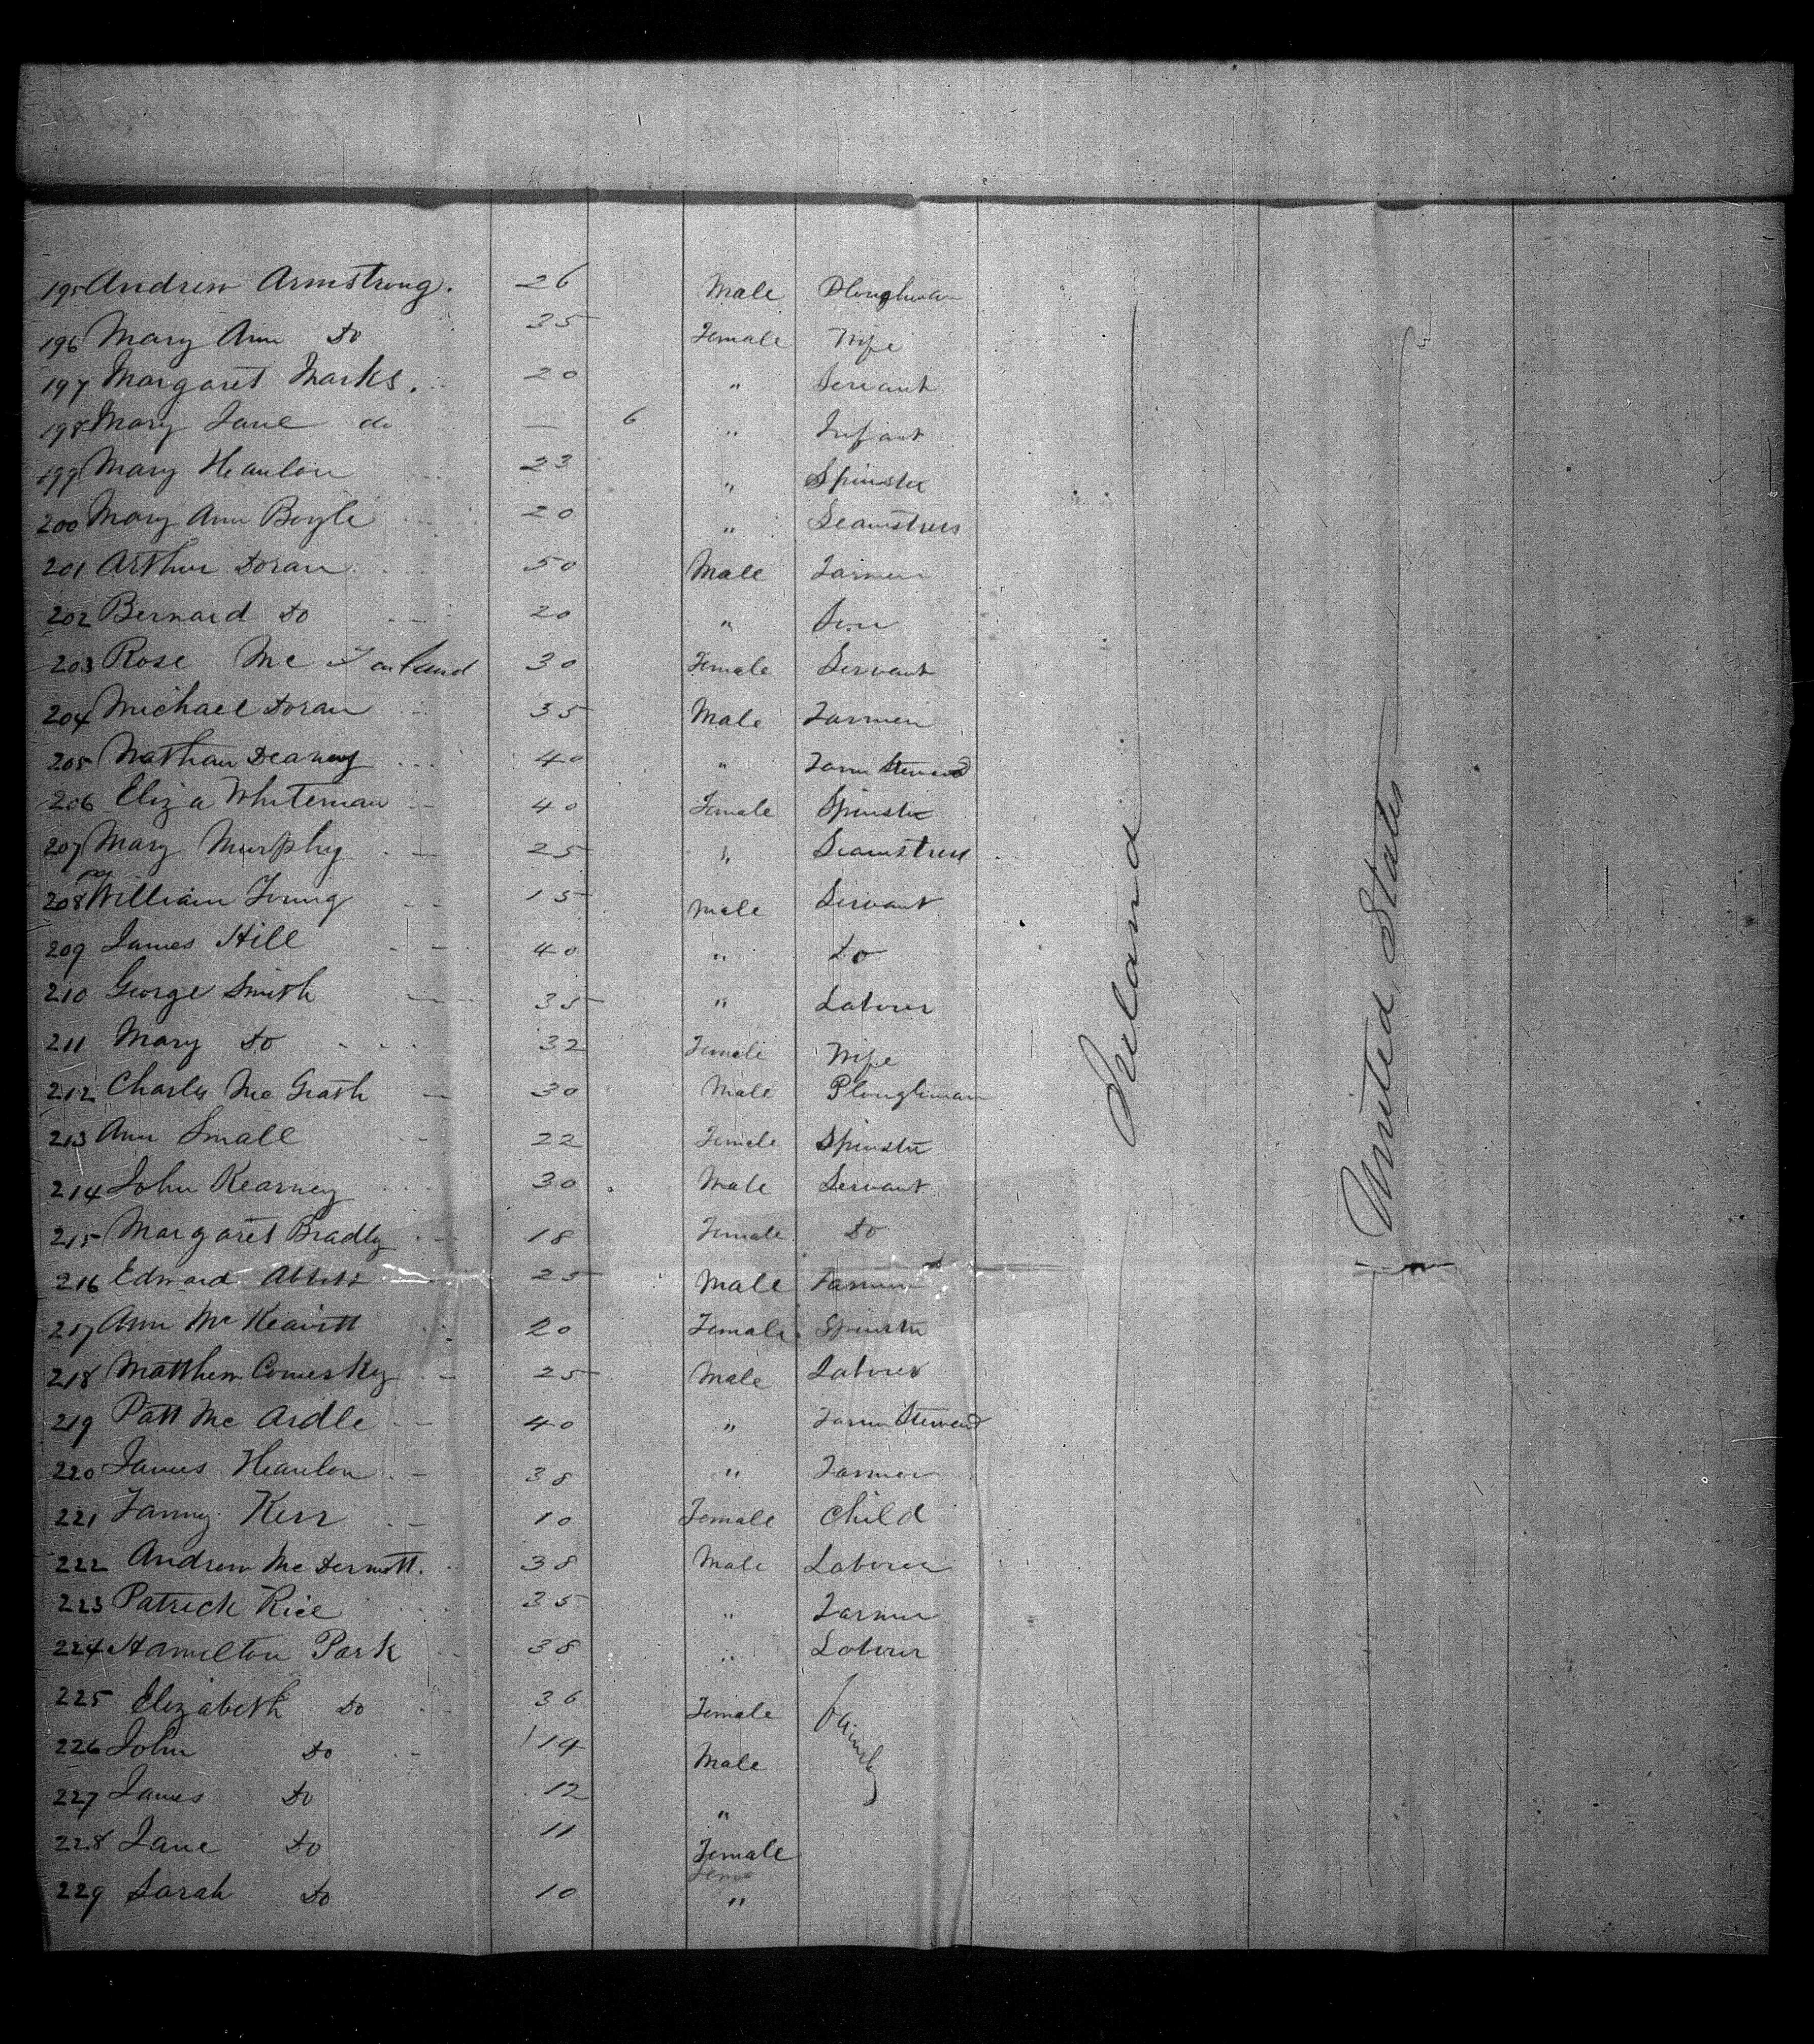 195 Andrew Armstrong. 26 Male Ploughman
196 Mary Ann Do 35 Female Wife
197 Margaret Marks. 20 " Servant
198 Mary Jane do — 6 " Infant
199 Mary Heanlon 23 " Spinster
200 Mary Ann Boyle 20 " Seamstress
201 Arthur Doran 50 Male Farmer
202 Bernard Do 20 " Son
203 Rose Mc 30 Female Servant
204 Michael Doran 35 Male Farmer
205 Nathan 40 " Farm Steward
206 Eliza Whiteman 40 Female Spinster
207 Mary Murphy 25 " Seamstress
208 William Young 15 Male Servant
209 James Hill 40 " Do
210 George Smith 35 " Laborer
211 Mary Do 32 Female Wife
212 Charles Mc Grath 30 Male Ploughman
213 Ann Small 22 Female Spinster
214 John Kearney 30 Male Servant
215 Margaret Bradly 18 Female Do
216 Edward Abbott 25 Male Farmer
217 Ann Mc Keavitt 20 Female Spinster
218 Matthew Comesky 25 Male Laborer
219 Patt Mc Ardle 40 " Farm Steward
220 James Heanlon 38 " Farmer
221 Fanny Kerr 10 Female Child
222 Andrew Mc Dermott. 38 Male Laborer
223 Patrick Rice 35 " Farmer
224 Hamilton Park 38 " Laborer
225 Elizabeth Do 36 Female family
226 John Do 14 Male
227 James Do 12 "
228 Jane Do 11 Female
229 Sarah Do 10 "
Ireland
United States